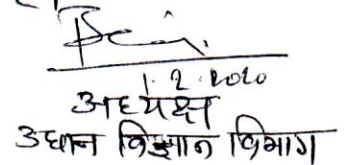 1.2.2020
अध्यक्ष
उद्यान विज्ञान विभाग